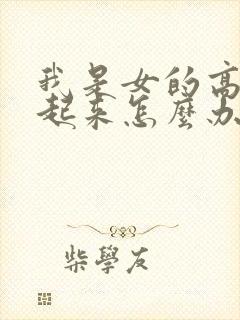 我是女的高
起来怎麼办
柴學友